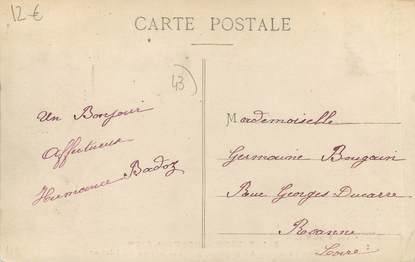 12 €
CARTE POSTALE
43
Un Bonjour
Affectueux
Badoz
Mademoiselle
Germaine Bougain
Rue Georges Ducarre
Roanne
Loire